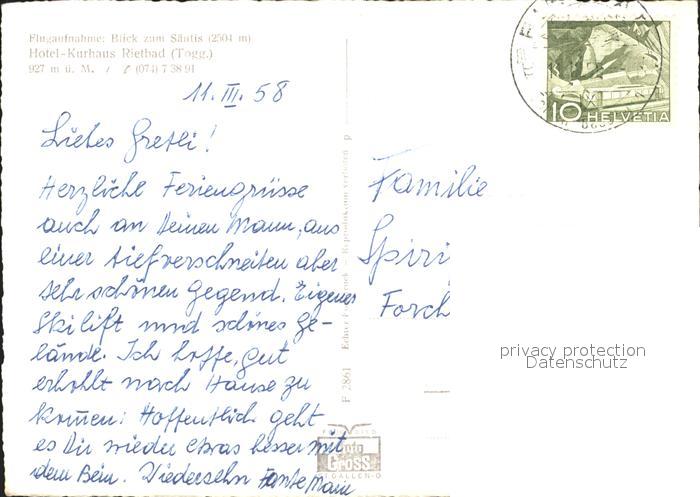 Flugaufnahme: Blick zum Säntis (2504 m)
Hotel-Kurhaus Rietbad (Togg.)
927 m ü. M. / (074) 7 38 91
11. III. 58
Liebes Gretli!
Herzliche Feriengrüsse
auch an Deinen Mann, aus
einer tiefverschneiten aber
sehr schönen Gegend. Eigener
Skilift und schönes Ge-
lände. Ich hoffe, gut
erhohlt nach Hause zu
kommen. Hoffentlich geht
es Dir wieder etwas besser mit
dem Bein. Wiedersehn
Familie
Spiri
Forch
10 HELVETIA
F 2861
Reproduktion verboten
Foto
GROSS
ST. GALLEN-O
privacy protection
Datenschutz